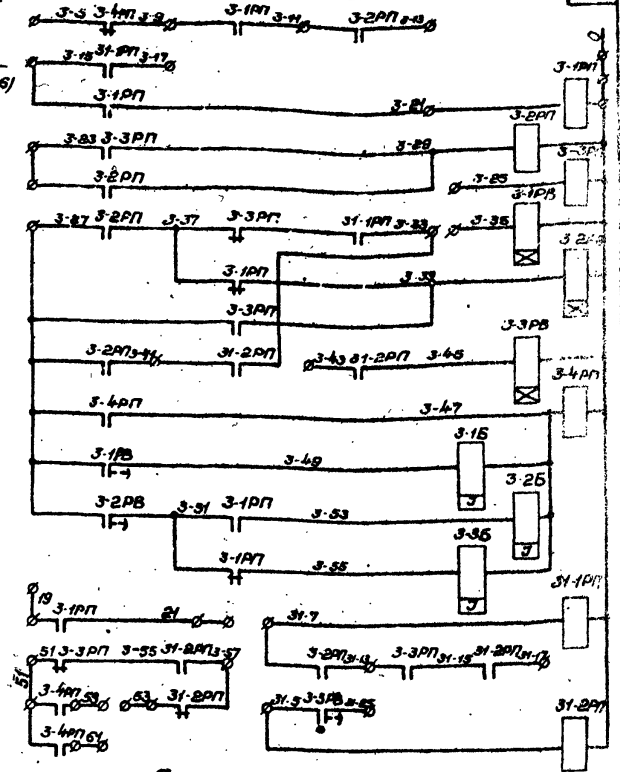 3-5 3-4РП 3-9 3-1РП 3-11 3-2РП 3-13
0
3-15 31-1РП 3-17
3-1РП
3-1РП 3-21
3-2РП
3-23 3-3РП 3-29
3-2РП 3-25
3-1РВ
3-27 3-2РП 3-37 3-3РП 31-1РП 3-33 3-35
3-1РП 3-39
3-3РП
3-3РВ
3-2РП 3-41 31-2РП 3-43 31-2РП 3-45
3-4РП
3-4РП 3-47
3-1Б
3-1РВ 3-49
3-2Б
3-2РВ 3-51 3-1РП 3-53
Э
3-3Б
3-1РП 3-55
Э
Э
31-1РП
19 3-1РП 21 31-7
51 3-3РП 3-55 31-2РП 3-57 3-2РП 31-13 3-3РП 31-15 31-2РП 31-17
51
3-4РП 59 53 31-2РП 31-5 3-3РВ
31-2РП
3-4РП 61